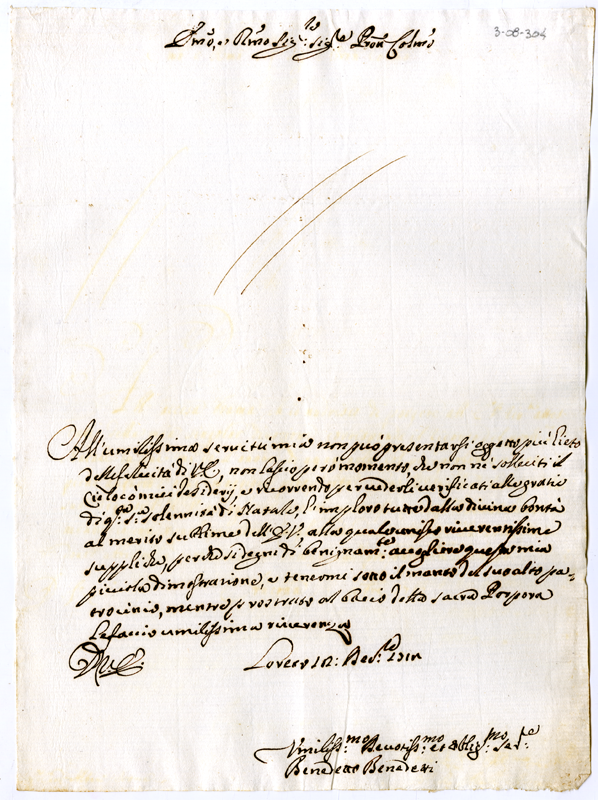 Em̃o, et Rm̃o Sig:r Sig:re Pron Colm̃o
3-08-304
All'umilissima servitù mia non può presentarsi oggetto più lieto
della felicità di V.E., non lascio però momento, che non ne solleciti il
Cielo co miei desiderij, e ricorrendo per vederli verificati alle grazie
di q.ta S.a Solennità di Natale, l'imploro tutte dalla divina bontà
al merito sublime dell'E.V. alla quale umilio riverentissime
suppliche, perche si degni di benignam:te accogliere questa mia
picciola dimostrazione, e tenermi sotto il manto del suo alto pa=
trocinio, mentre prostrato al bacio della sacra Porpora
le faccio umilissima riverenza
Di V.E.
Loreto 12: Dec.re
Umiliss:mo Devotiss:mo et Oblig:mo Se.re
Benedetto Benedetti